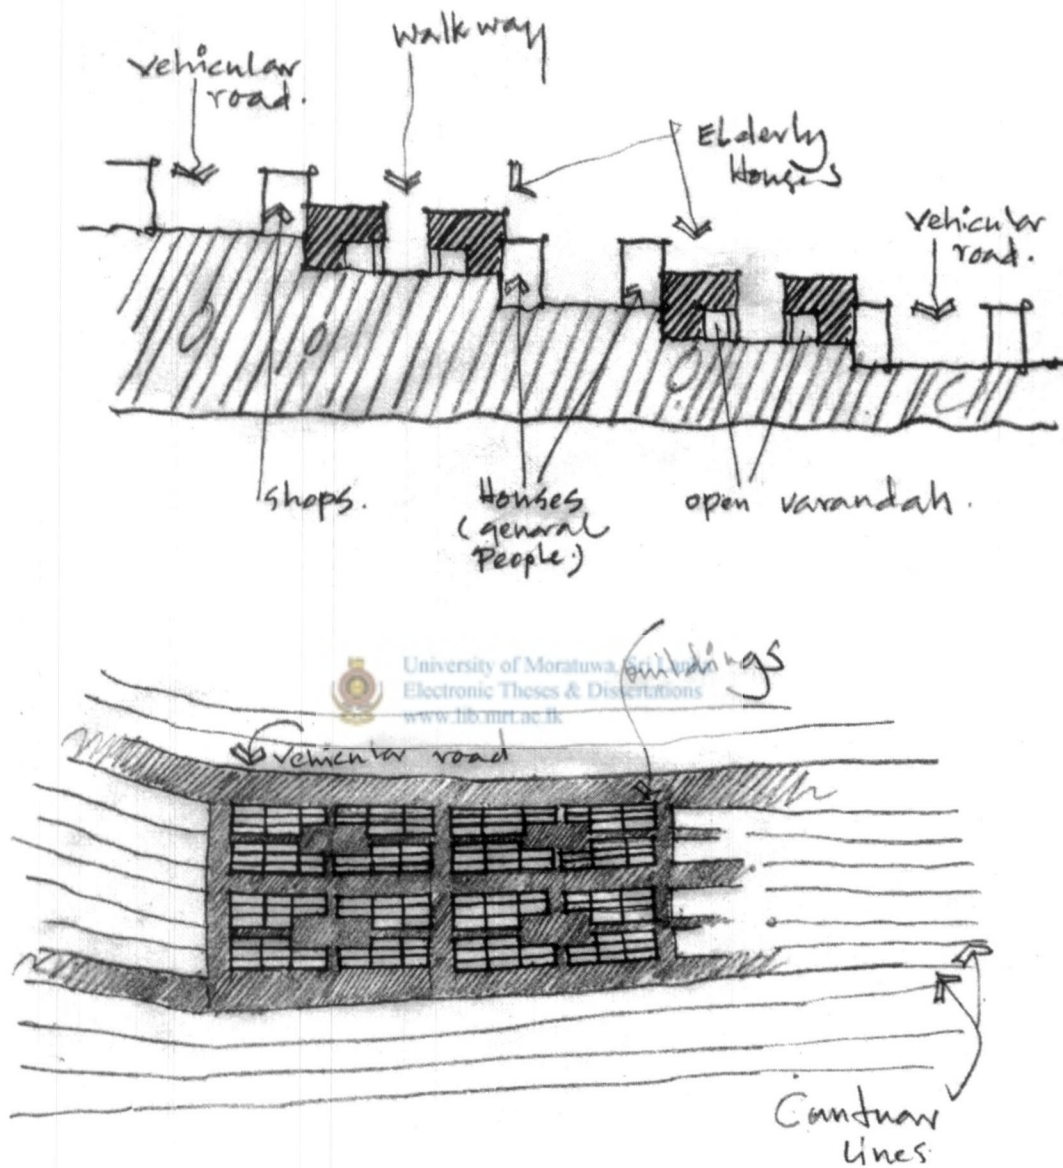 walkway
vehicular
road.
Elderly
Houses
vehicular
road.
shops.
Houses
(general
People)
open varandah.
University of Moratuwa, Sri Lanka
Electronic Theses & Dissertations
www.lib.mrt.ac.lk
buildings
vehicular road
Contuar
lines